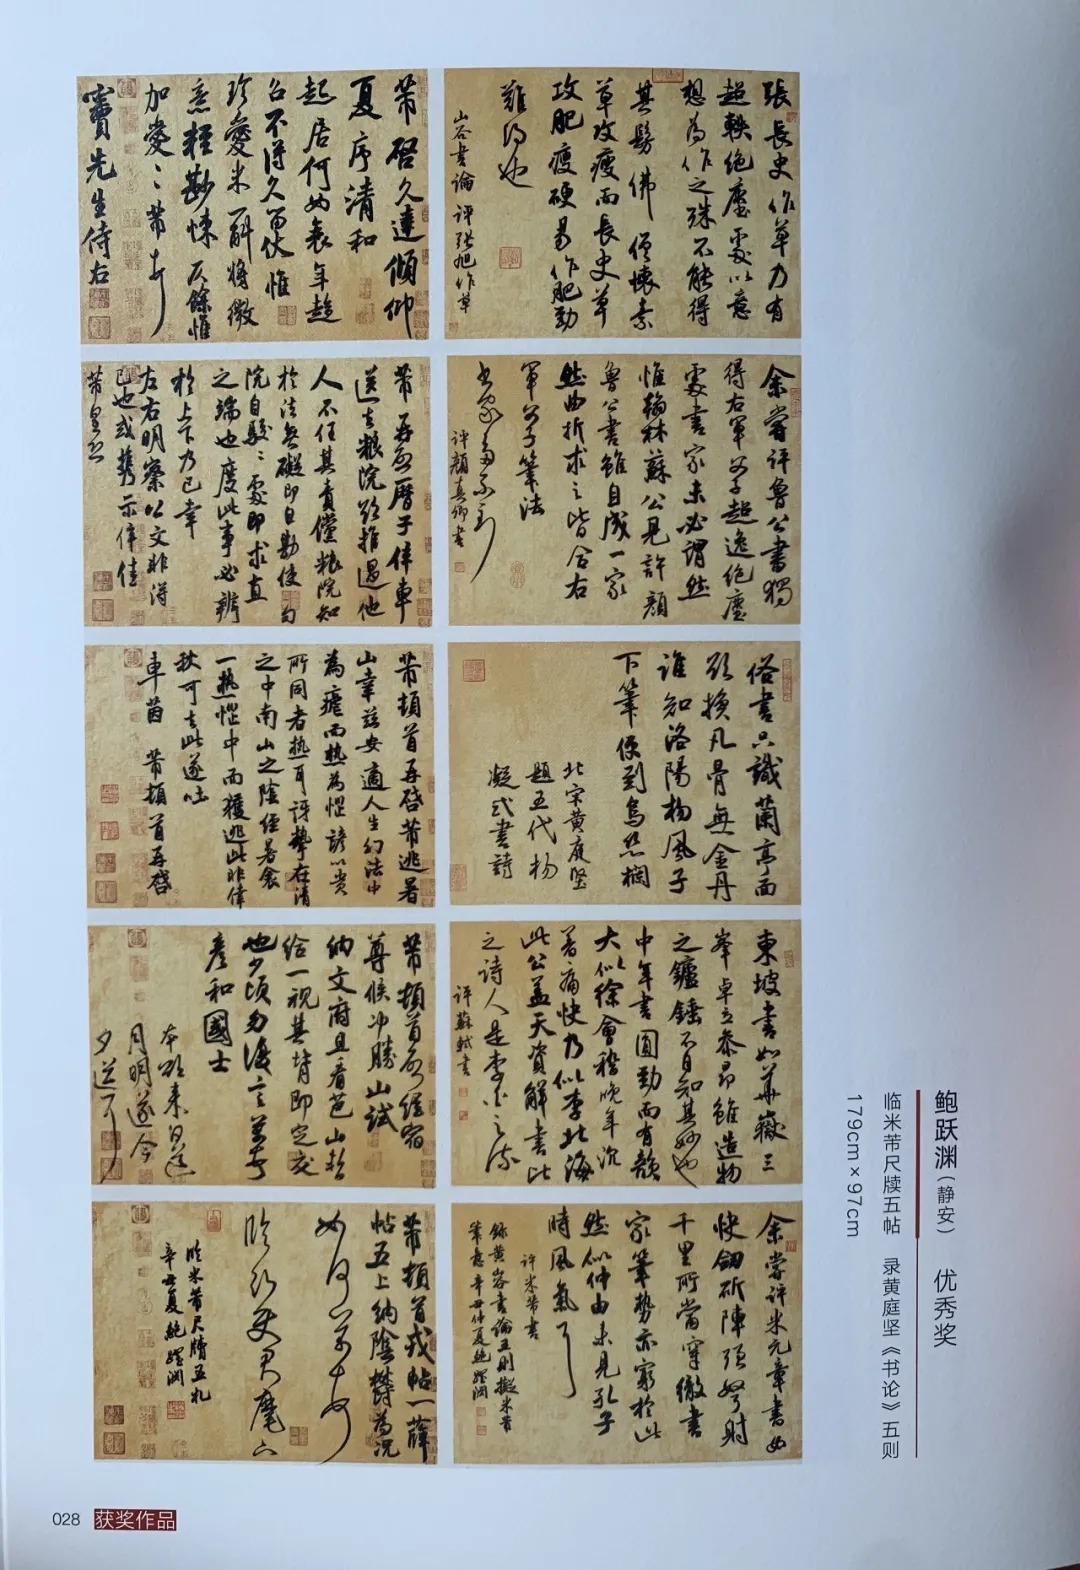 張長史作草乃有
超軼絕塵處以意
想為作之殊不能得
其髣佛 僧懷素
草攻瘦而長史草
攻肥瘦硬易作肥勁
難得也
山谷書論 評張旭作草
余嘗評魯公書獨
得右軍父子超逸絕塵
處書家未必謂然
惟翰林蘇公見許顏
魯公書雖自成一家
然曲折求之皆合右
軍父子筆法
書家多不到
評顏真卿書
俗書只識蘭亭面
欲換凡骨無金丹
誰知洛陽楊風子
下筆便到烏絲欄
北宋黃庭堅
題五代楊
凝式書詩
東坡書如華嶽三
峯卓立參昴雖造物
之鑪錘不自知其妙也
中年書圓勁而有韻
大似徐會稽晚年沉
著痛快乃似李北海
此公蓋天資解書比
之詩人是李白之流
評蘇軾書
余嘗評米元章書如
快劒斫陣強弩射
千里所當穿徹書
家筆勢亦窮於此
然似仲由未見孔子
時風氣耳
評米芾書
錄黃山谷書論五則擬米芾
筆意辛丑仲夏鮑躍淵
芾啓久違傾仰
夏序清和
起居何如衰年趨
召不得久留伏惟
珍愛米一斛將微
意輕尠悚仄餘惟
加愛〻芾頓首
竇先生侍右
芾再啟曆子偉車
送去粮院欲推過他
人不任其責儻粮院知
於法無礙即自勘使自
院自駮〻處即求直
之端也度此事必辨
於上下乃已幸
左右明察似文非得
已也或携示偉佳
芾皇恐
芾頓首再啓芾逃暑
山幸兹安適人生幻法中
為虐而热為惱諺以貴
所同者热耳訝摯在清
之中南山之陰經暑衾
一热惱中而獲逃此非偉
秋可去此遂吐
車茵 芾頓首再啓
芾頓首啓經宿
尊候冲勝山試
納文府且看芭山暫
給一視其背即定交
也少頃勿復言芾頓首
彥和國士
本欲來日送
月明遂今
夕送耳
芾頓首戎帖一薛
帖五上納陰欝為况
如何芾頓首
臨沂使君麾下
臨米芾尺牘五札
辛丑夏鮑躍淵
鲍跃渊（静安） 优秀奖
临米芾尺牍五帖 录黄庭坚《书论》五则
179cm×97cm
028 获奖作品